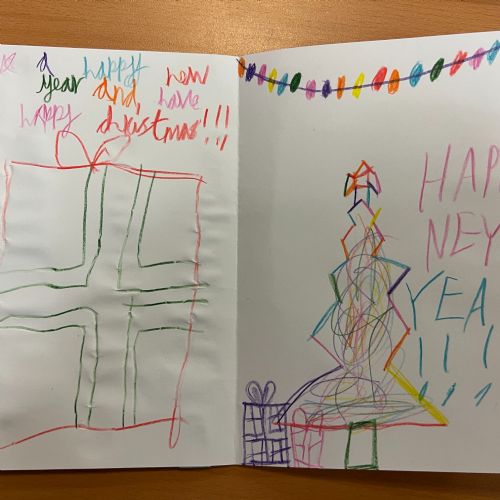 a happy new
year and have
happy christmas!!!
HAP
NEY
YEA
!!!